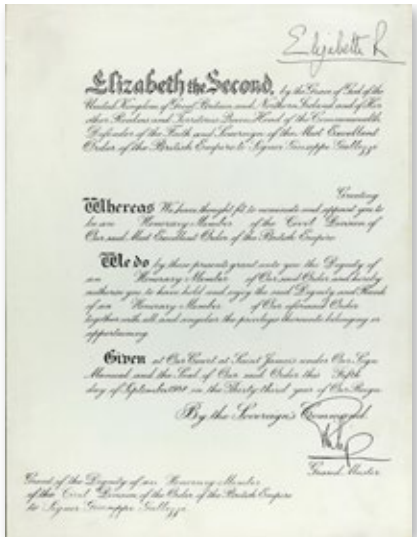 Elizabeth R
Elizabeth the Second, by the Grace of God of the
United Kingdom of Great Britain and Northern Ireland and of Her
other Realms and Territories Queen, Head of the Commonwealth,
Defender of the Faith and Sovereign of the Most Excellent
Order of the British Empire to Signor Giuseppe
Greeting
Whereas We have thought fit to nominate and appoint you to
be an Honorary Member of the Civil Division of
Our said Most Excellent Order of the British Empire
We do by these presents grant unto you the Dignity of
an Honorary Member of Our said Order and hereby
authorise you to have hold and enjoy the said Dignity and Rank
of an Honorary Member of Our aforesaid Order
together with all and singular the privileges thereunto belonging or
appertaining.
Given at Our Court at Saint James's under Our Sign
Manual and the Seal of Our said Order this Fifth
day of September 1984 in the Thirty third year of Our Reign
By the Sovereign's Command.
Grand Master
Grant of the Dignity of an Honorary Member
of the Civil Division of the Order of the British Empire
to Signor Giuseppe